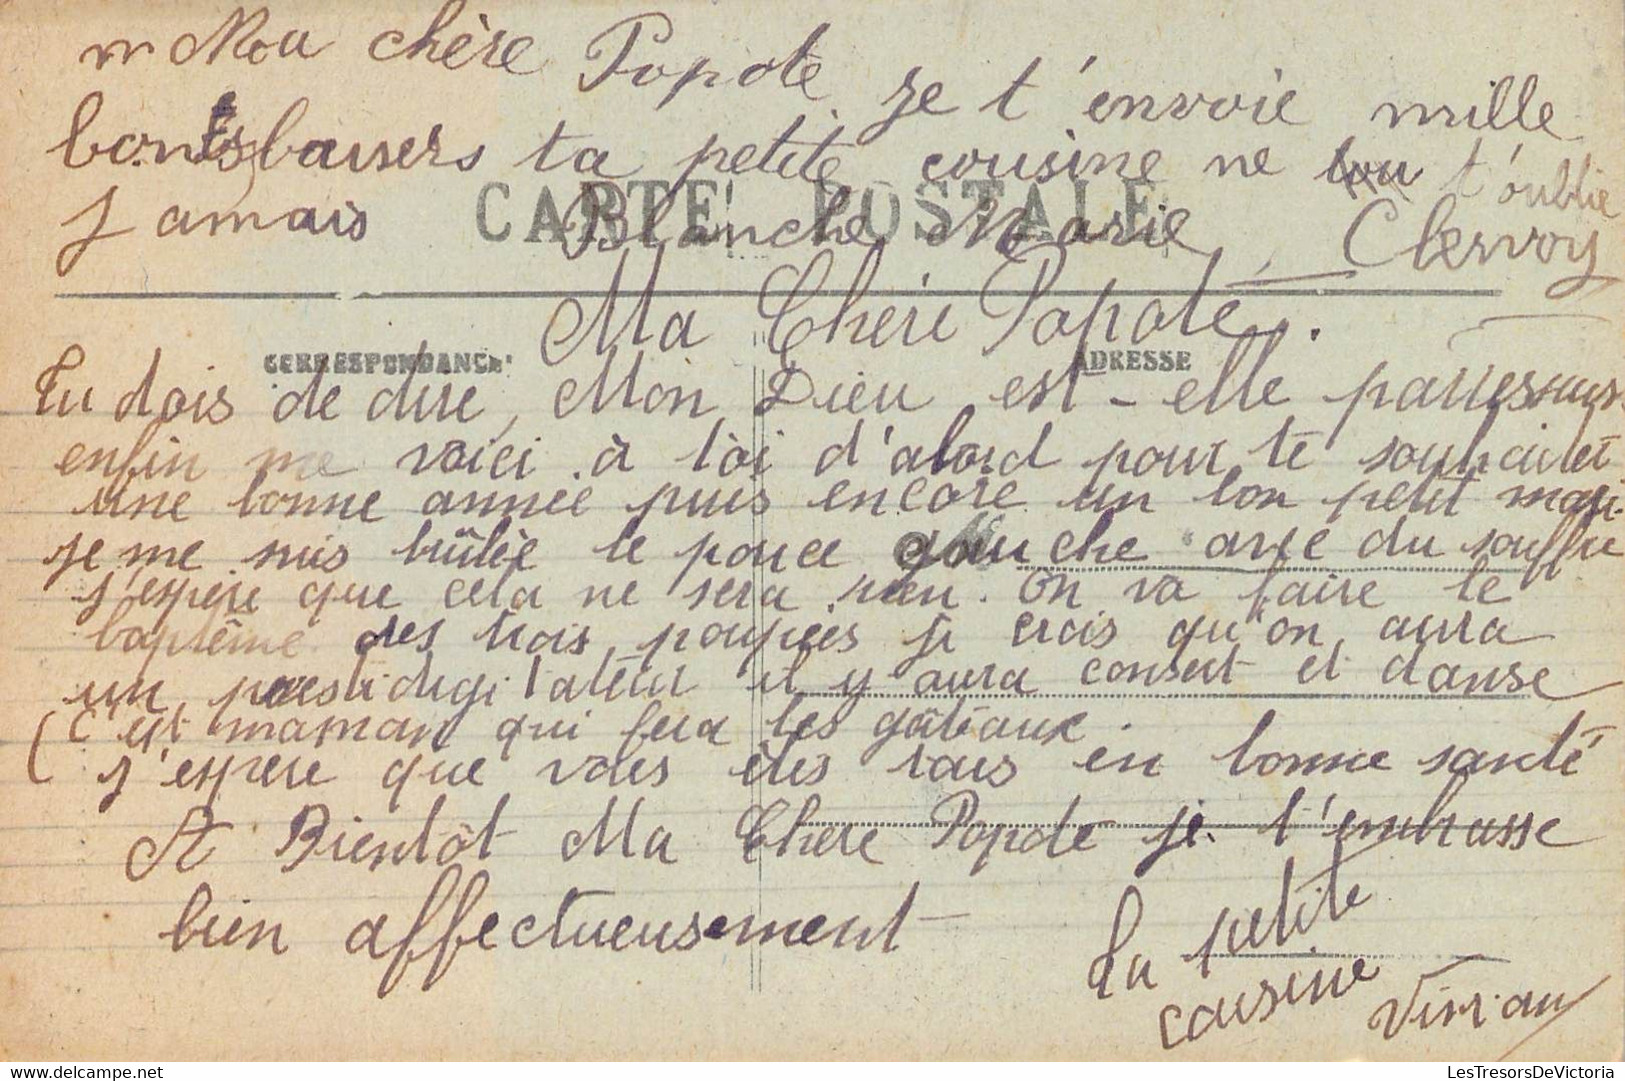 Ma chère Popote je t'envoie mille
bons baisers ta petite cousine ne t'oublie
jamais Blanche Marie Clervoy
CARTE POSTALE
Ma Chère Popote.
CORRESPONDANCE ADRESSE
Tu dois de dire, Mon Dieu est-elle paresseuse
enfin me voici à toi d'abord pour te souhaiter
une bonne année puis encore un bon petit mari.
je me suis brûlée le pouce gauche avec du souffre
j'espère que cela ne sera rien. On va faire le
baptême des trois poupées je crois qu'on aura
un prestidigitateur il y aura concert et danse
(C'est maman qui fera les gâteaux.
j'espère que vous êtes tous en bonne santé
A Bientôt Ma Chère Popote je t'embrasse
bien affectueusement
Ta petite
cousine Vivian
LesTresorsDeVictoria